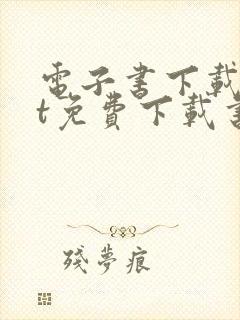 電子書下載
t免費下載書
殘夢痕